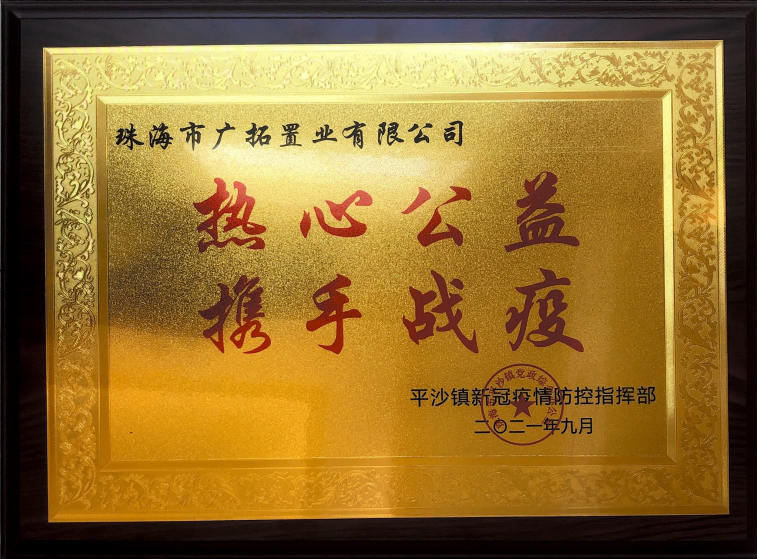 珠海市广拓置业有限公司
热心公益
携手战疫
平沙镇新冠疫情防控指挥部
二〇二一年九月